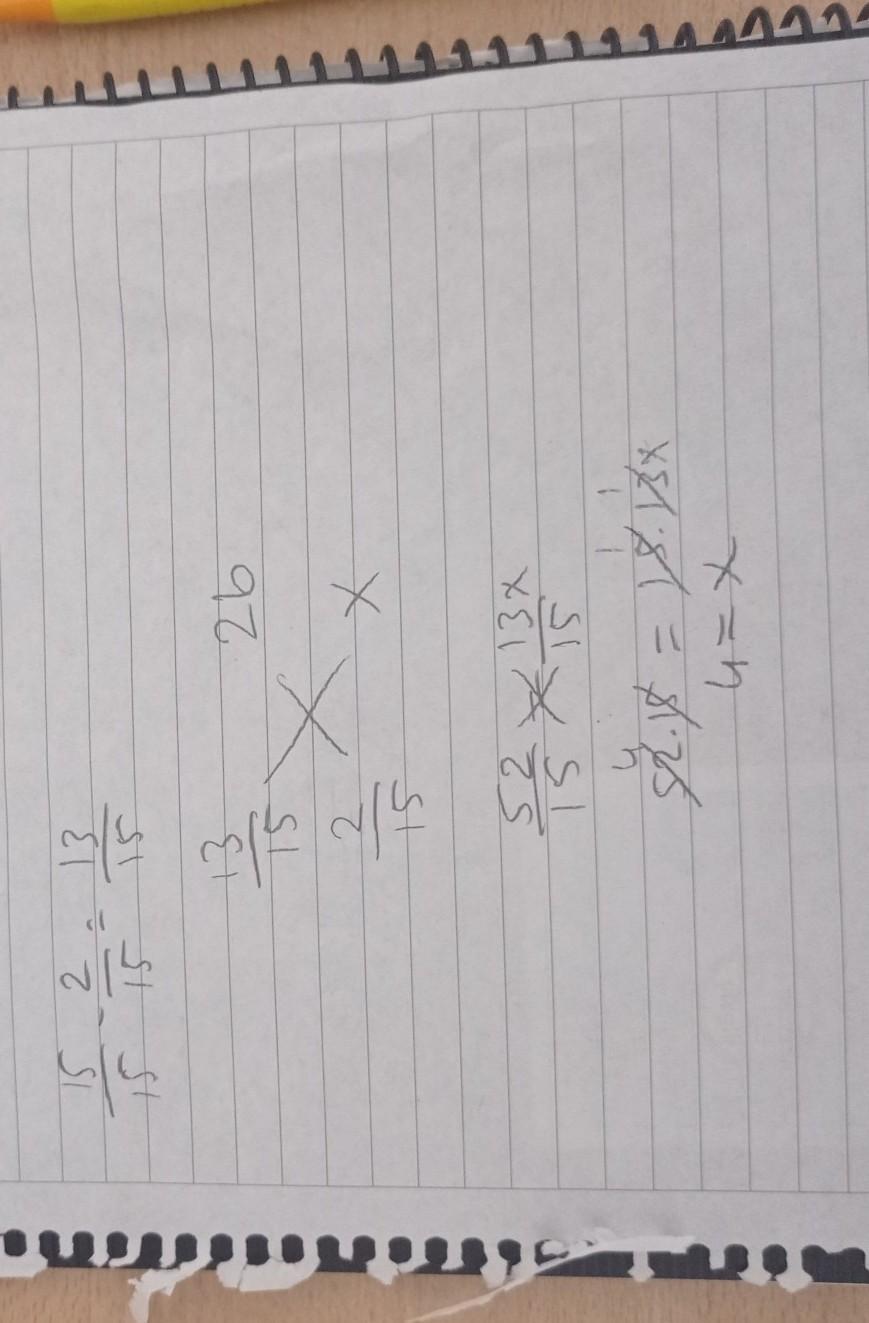 15/15 - 2/15 = 13/15
13/15 26
2/15 x
52/15 × 13x/15
4 1 1
52.15 = 15.13x
4 = x